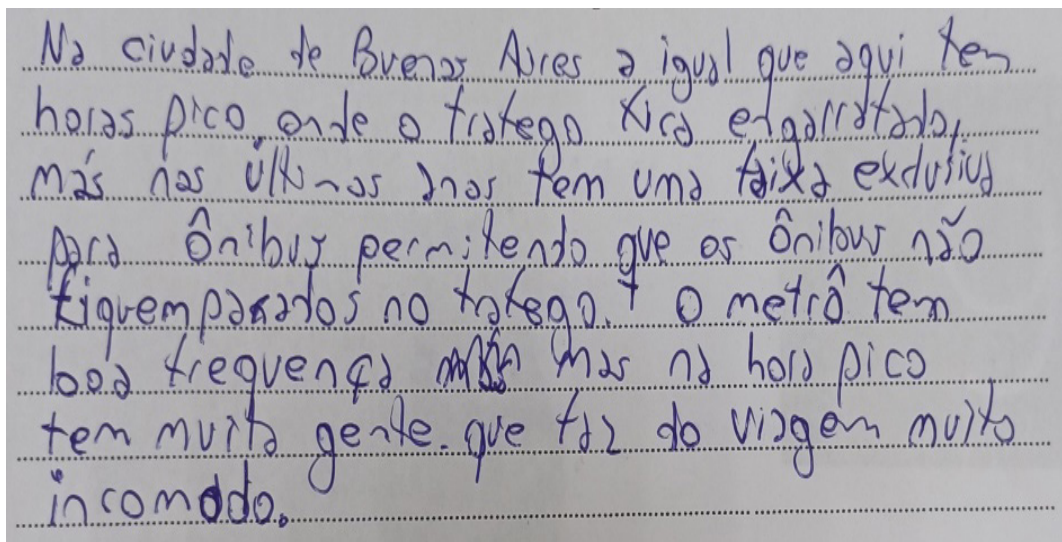 Na ciudade de Buenos Aires a igual que aqui tem
horas pico, onde o trafego fica engarrafado,
más nos últimos anos tem uma faixa exclusiva
para Ônibus permitendo que os Ônibus não
fiquem parados no trafego. O metrô tem
boa frequença mas na hora pico
tem muita gente. que faz do viagem muito
incomodo.